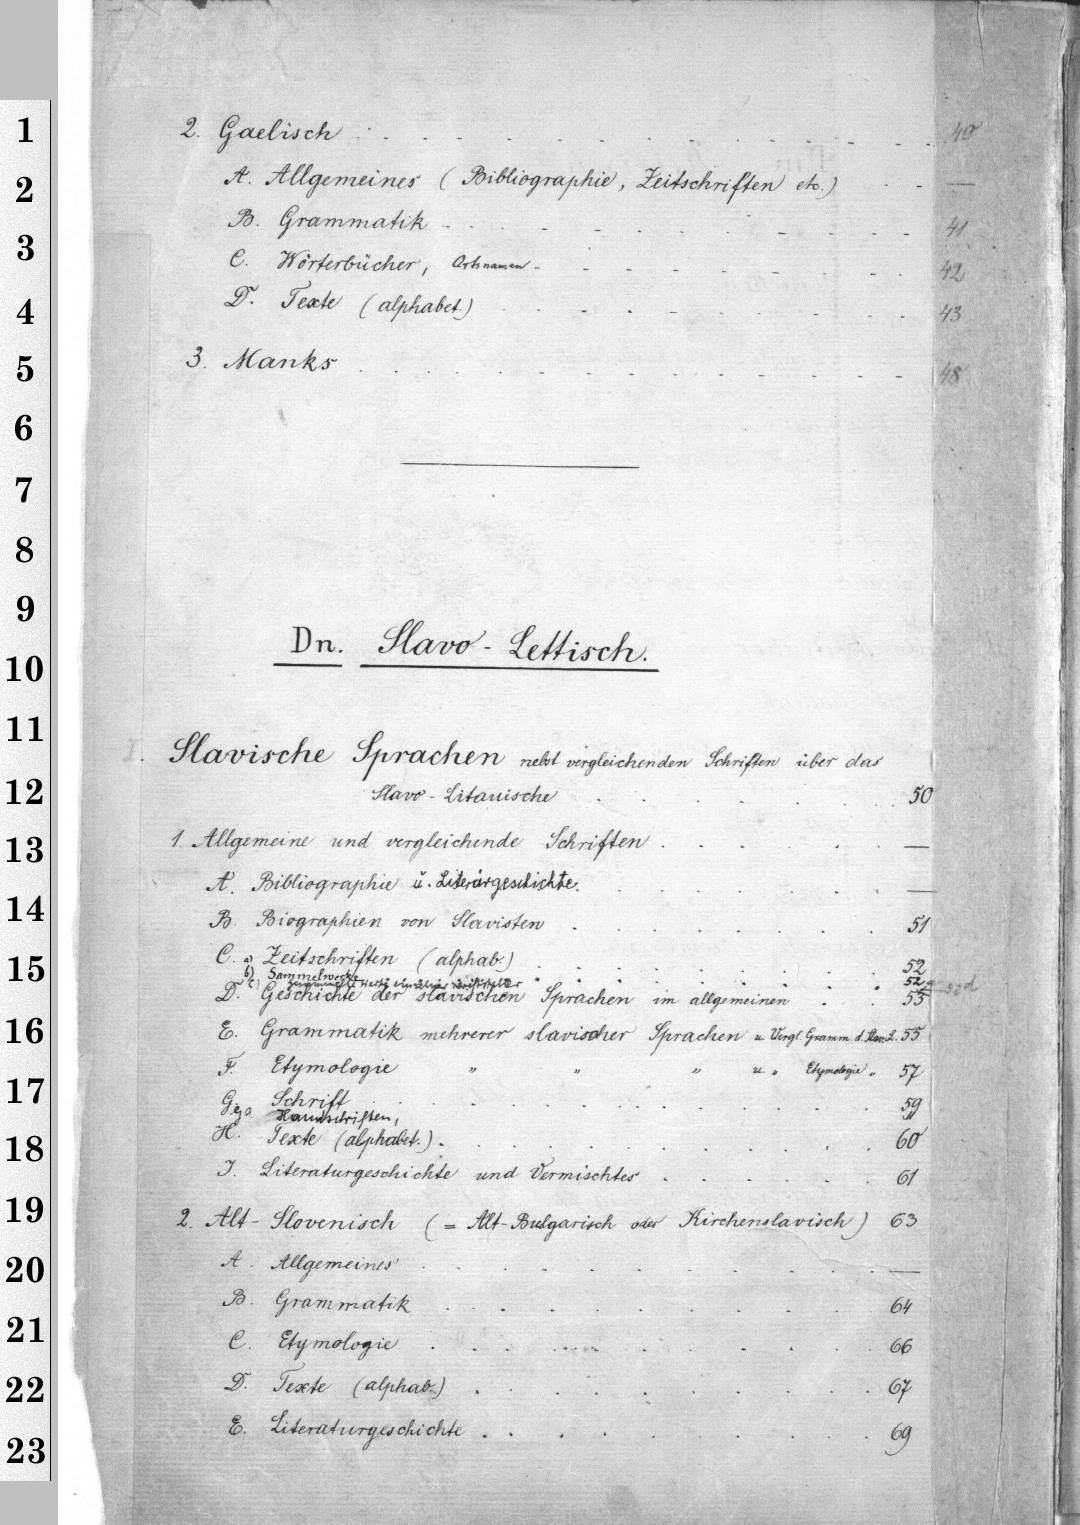 1
2
3
4
5
6
7
8
9
10
11
12
13
14
15
16
17
18
19
20
21
22
23
2. Gaelisch . . . . . . . . . . 40
A. Allgemeines (Bibliographie, Zeitschriften etc.) . . —
B. Grammatik . . . . . . . . . 41
C. Wörterbücher, Ortsnamen . . . . . . . 42
D. Texte (alphabet.) . . . . . . . . 43
3. Manks . . . . . . . . . . 48
Dn. Slavo-Lettisch.
I. Slavische Sprachen nebst vergleichenden Schriften über das
Slavo-Litauische . . . . . . 50
1. Allgemeine und vergleichende Schriften . . . . . —
A. Bibliographie u. Literärgeschichte. . . . . . —
B. Biographien von Slavisten . . . . . . 51
C. a) Zeitschriften (alphab.) . . . . . . . 52
b) Sammelwerke . . . . . . 52a
c) Gesammelte Werke einzelner Schriftsteller 52d
D. Geschichte der slavischen Sprachen im allgemeinen . . 53
E. Grammatik mehrerer slavischer Sprachen u. Vergl. Gramm. d. 55
F. Etymologie " " " u. " Etymologie " 57
G. Schrift . . . . . . . . . 59
Handschriften, "
H. Texte (alphabet.) . . . . . . . . 60
I. Literaturgeschichte und Vermischtes . . . . . 61
2. Alt-Slovenisch (= Alt-Bulgarisch oder Kirchenslavisch) 63
A. Allgemeines . . . . . . . . . —
B. Grammatik . . . . . . . . 64
C. Etymologie . . . . . . . . 66
D. Texte (alphab.) . . . . . . . . 67
E. Literaturgeschichte . . . . . . . 69